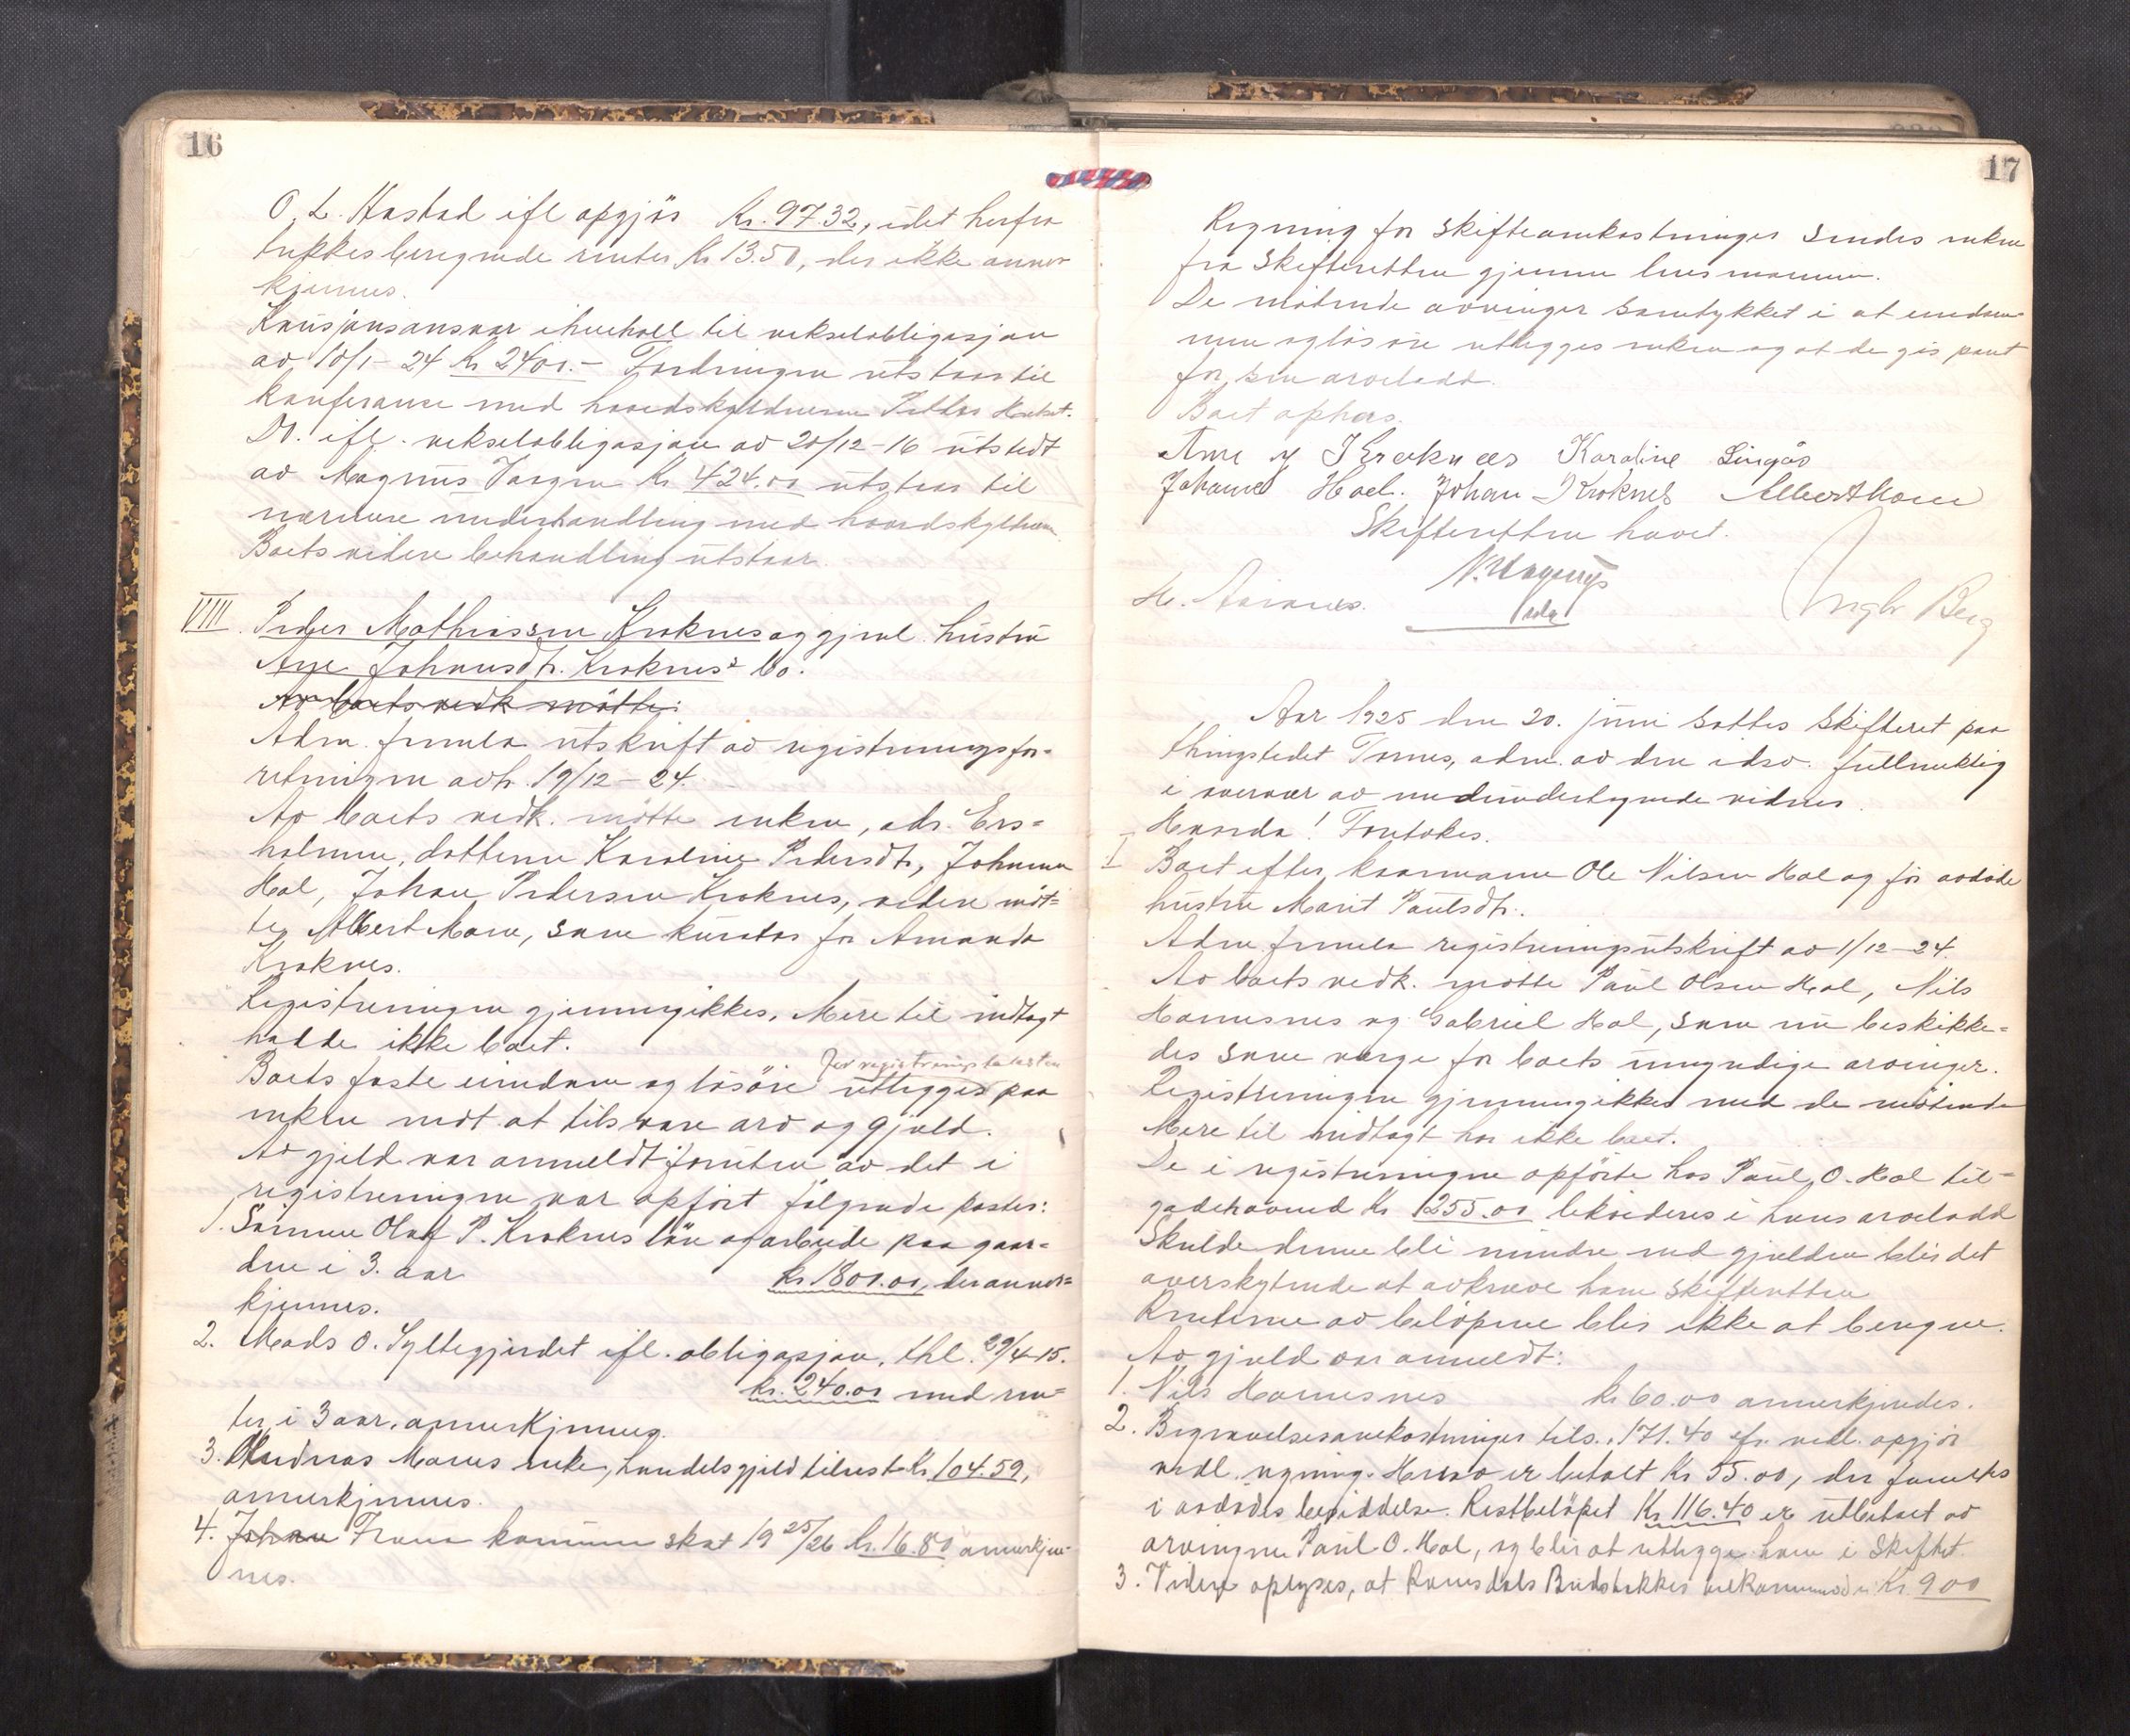 16
O. L. Hustad ifl opgjör Kr. 97.32, idet herfra
trekkes beregnede renter kr 13.50, der ikke anner
kjennes.
Kausjonsansvar ihenhold til vekselobligasjon
av 10/1-24 Kr 2400.- Fordringen utstaar til
konferanse med hovedskyldneren
Do. ifl. vekselobligasjon av 20/12-16 utstedt
av Magnus Kr 424.00 utstaar til
nærmere underhandling med hovedskyldneren.
Boets videre behandling utstaar.
VIII. Peder Mathiassen Kroknes og gjenl. hustru
Ane Johansdtr. Kroknes' bo.
Av boets vedk mötte:
Adm. fremla utskrift av registreringsfor-
retningen avh. 19/12-24.
Av boets vedk. mötte enken, adr. Ers-
holmen, datteren Karoline Pedersdtr, Johanna
Hol, Johan Pedersen Kroknes, videre möt-
te Albert Moen, som kurator for Amanda
Kroknes.
Registreringen gjennemgikkes. Mere til indtægt
hadde ikke boet.
for registreringstaksten
Boets faste eiendom og lösöre utlegges paa
enken mot at tilsvare arv og gjeld.
Av gjeld var anmeldt foruten av det i
registreringen var opfört fölgende poster:
1. Sönnen Olaf P. Kroknes lön av arbeide paa gaar-
den i 3. aar kr 1800.00, der anner-
kjennes.
2. Mads O. Syltegjerdet ifl. obligasjon, thl. 29/4-15.
kr. 240.00 med ren-
ter i 3 aar, annerkjennes.
3. Andreas Moens enke, handelsgjeld tilrest Kr. 104.59,
annerkjennes.
4. Johan Fræna kommune skat 19 25/26 kr. 16.80 annerkjen-
nes.
17
Regning for skifteomkostninger sendes enken
fra Skifteretten gjennem lensmannen.
De mötende arvinger samtykket i at eiendom-
men og lösöre utlegges enken og at de gis pant
for sin arvelodd.
Boet ophörs.
Ane J Kroknes Karoline Lingås
Johanna Hoel. Johan Kroknes Albert Moen
Skifteretten hævet.
H. Aarønes. Ingbr Berg
Aar 1925 den 20. juni sattes skifteret paa
thingstedet Tornes, adm. av den edsv. fullmektig
i overvær av medundertegnede vidner.
Hvorda! Foretokes.
I Boet efter kaarmann Ole Nilsen Hol og för avdöde
hustru Marit Paulsdtr.
Adm fremla registreringsutskrift av 1/12-24.
Av boets vedk. mötte Paul Olsen Hol, Nils
Harnesnes og Gabriel Hol, som nu beskikke-
des som verge for boets umyndige arvinger.
Registreringen gjennemgikkes med de mötende
Mere til indtægt har ikke boet.
De i registreringen opförte hos Paul O. Hol til-
godehavend Kr 1255.00 likvideres i hans arvelodd
Skulde denne bli mindre end gjelden blir det
overskytende at avkræve ham skifteretten
Renterne av belöpene blir ikke at beregne.
Av gjeld var anmeldt:
1. Nils Harnesnes kr 60.00 annerkjendes.
2. Begravelsesomkostninger tils. 171.40 efr. vedl. opgjör
vedl. regning. Herav er betalt Kr 55.00, der
i avdödes besiddelse. Restbelöpet Kr 116.40 er utbetalt av
arvingen Paul O. Hol, og blir at utlegge ham i Skiftet.
3. Videre oplyses, at Romsdals Budstikke tilkommer Kr. 9.00